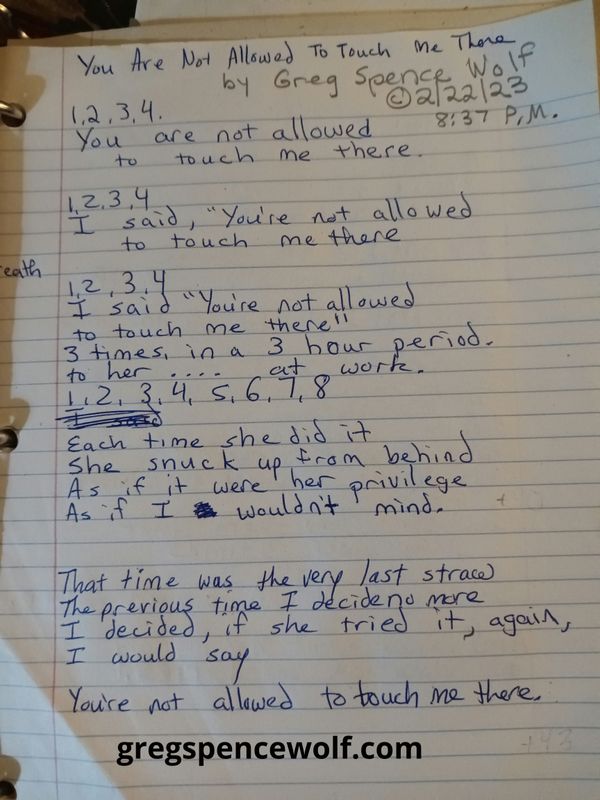 You Are Not Allowed To Touch Me There
by Greg Spence Wolf
©2/22/23
8:37 P.M.
1,2,3,4.
You are not allowed
to touch me there.
1,2,3,4
I said, "You're not allowed
to touch me there
eath
1,2,3,4
I said "You're not allowed
to touch me there"
3 times, in a 3 hour period.
to her .... at work.
1,2,3,4,5,6,7,8
Each time she did it
She snuck up from behind
As if it were her privilege
As if I wouldn't mind.
That time was the very last straw
The previous time I decide no more
I decided, if she tried it, again,
I would say
You're not allowed to touch me there.
gregspencewolf.com